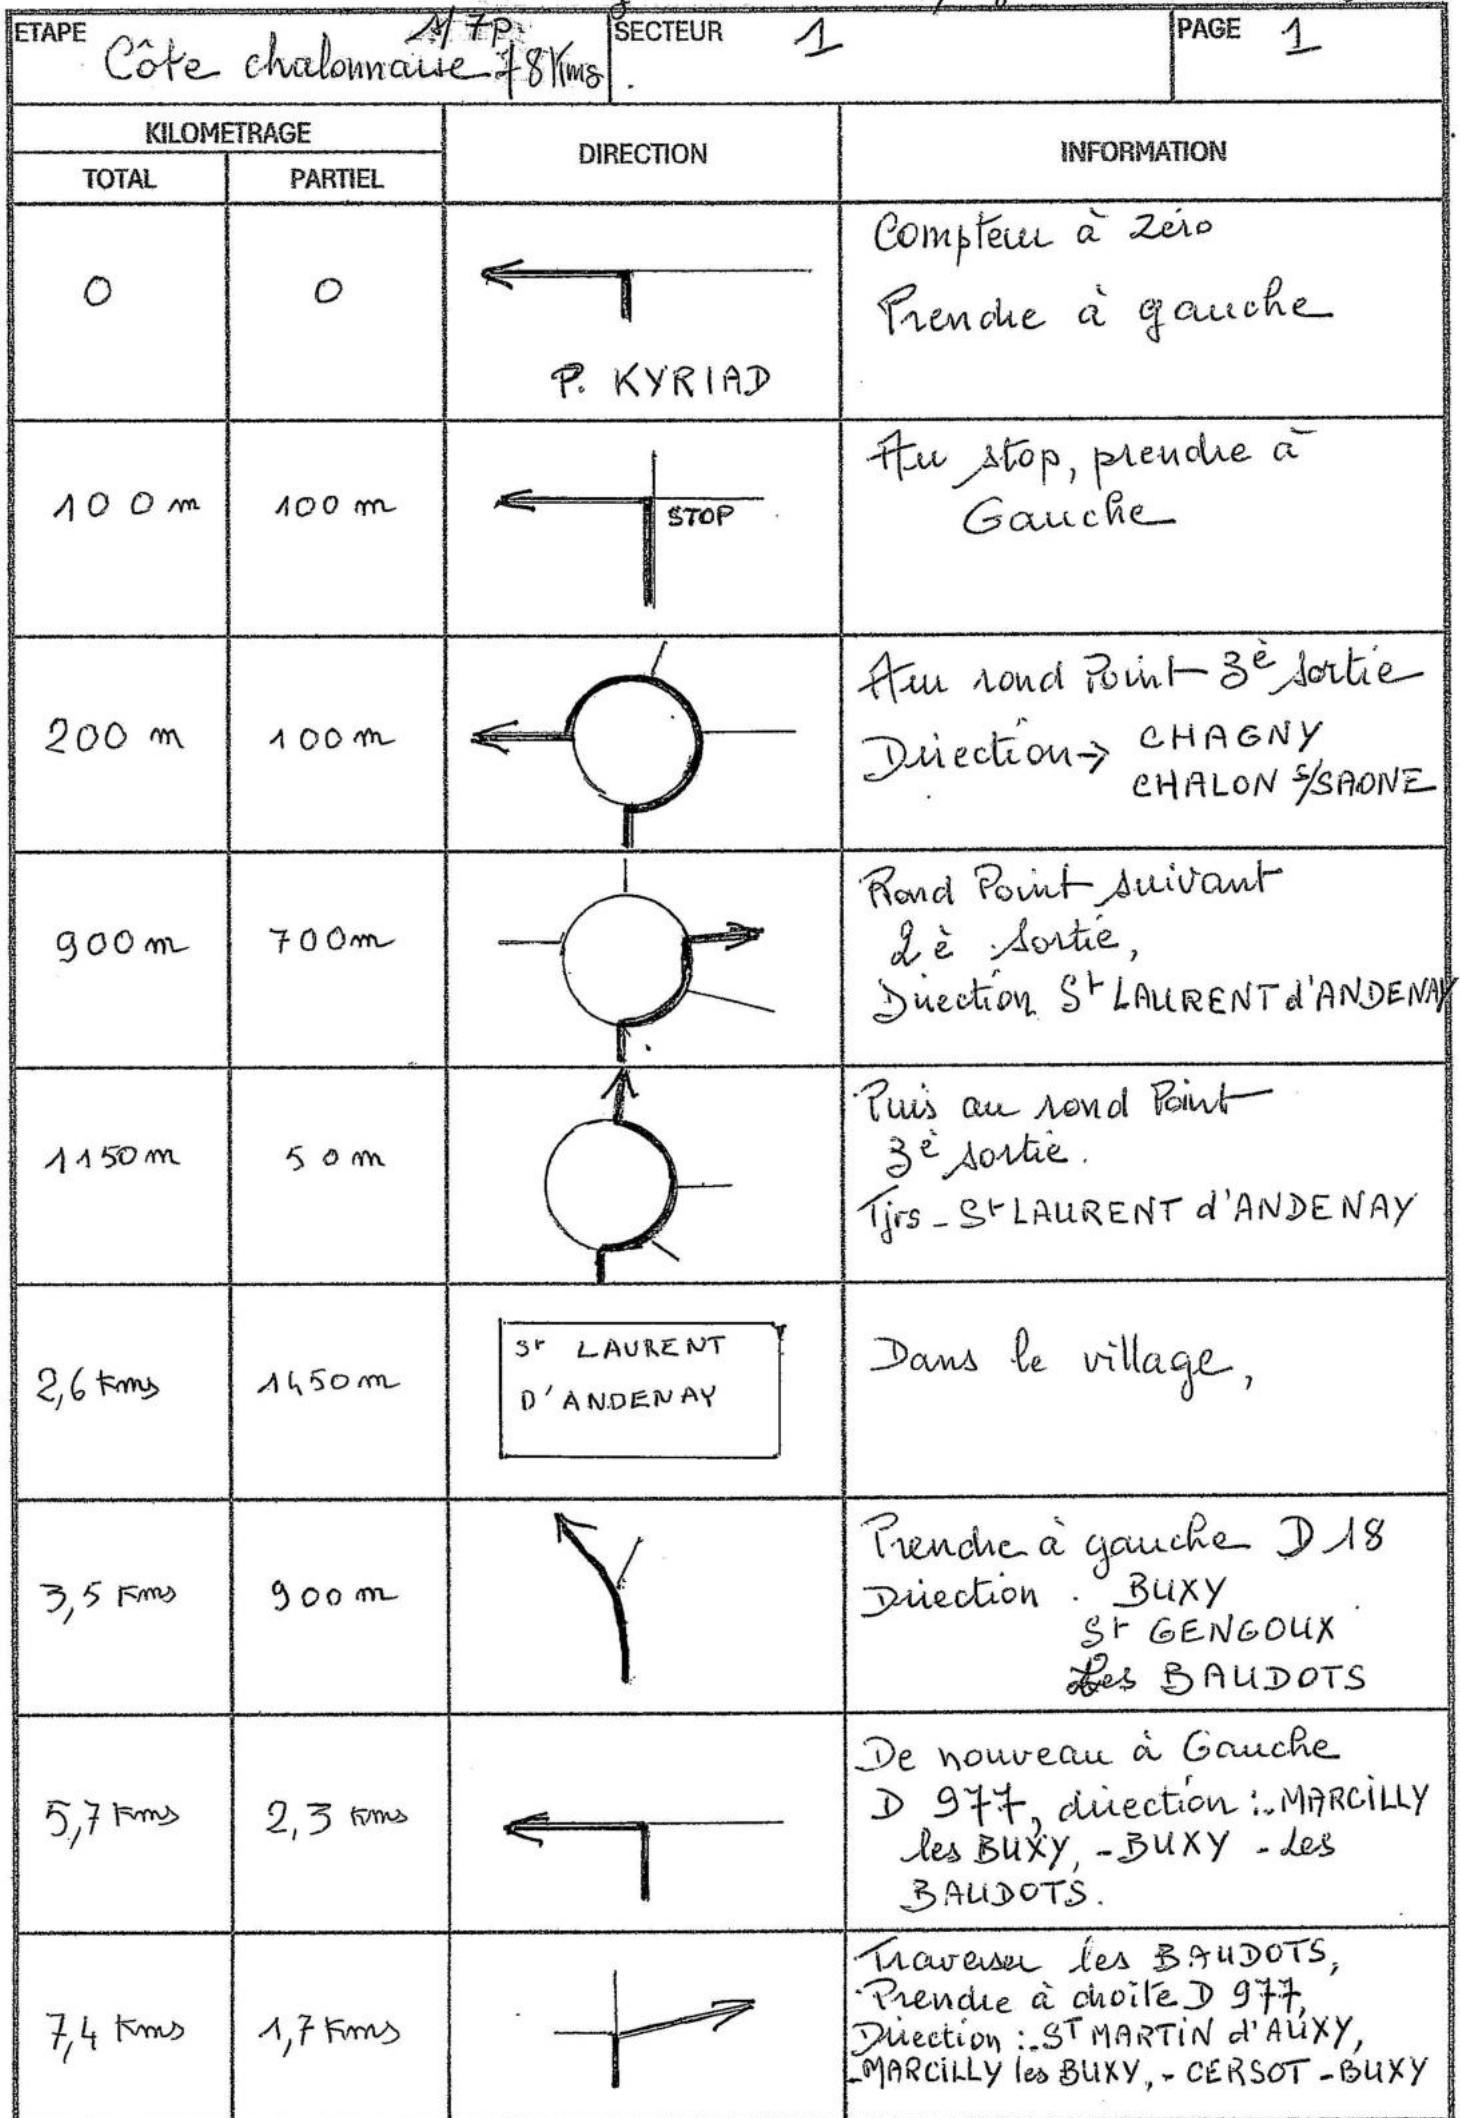 ETAPE
1/7p.
Côte chalonnaise 78 Kms
SECTEUR 1
PAGE 1
KILOMETRAGE
TOTAL
PARTIEL
DIRECTION
INFORMATION
0
0
P. KYRIAD
Compteur à zéro
Prendre à gauche
100 m
100 m
STOP
Au stop, prendre à
Gauche
200 m
100 m
Au rond Point 3è sortie
Direction → CHAGNY
CHALON s/SAONE
900 m
700 m
Rond Point suivant
2è sortie,
Direction St LAURENT d'ANDENAY
1150 m
50 m
Puis au rond Point
3è sortie.
Tjrs - St LAURENT d'ANDENAY
2,6 Kms
1450 m
St LAURENT
D'ANDENAY
Dans le village,
3,5 Kms
900 m
Prendre à gauche D 18
Direction . BUXY
St GENGOUX
Les BAUDOTS
5,7 Kms
2,3 Kms
De nouveau à Gauche
D 977, direction : MARCILLY
les BUXY, - BUXY - Les
BAUDOTS.
7,4 Kms
1,7 Kms
Traverser les BAUDOTS,
Prendre à droite D 977,
Direction : ST MARTIN d'AUXY,
- MARCILLY les BUXY, - CERSOT - BUXY